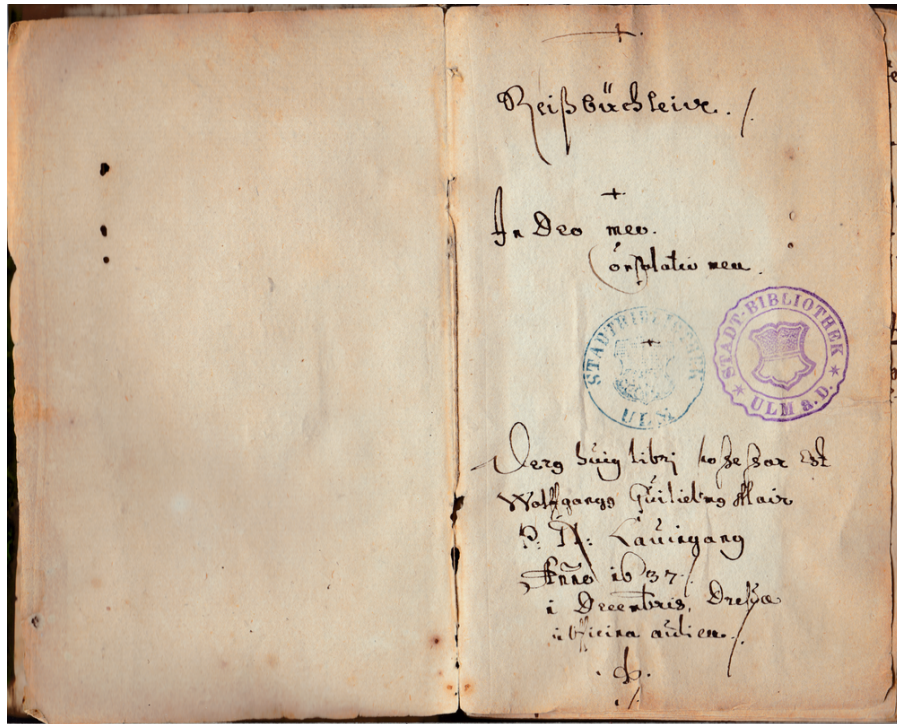 Reißbüchlein.
In Deo meo.
Consolatio mea.
STADTBIBLIOTHEK ULM
STADT-BIBLIOTHEK ULM a. D.
Verg huig libri possessor Est
Wolffgangg Guilielmg Mair
P: N: Lauingang
Anno 1637.
Decembris,
officina